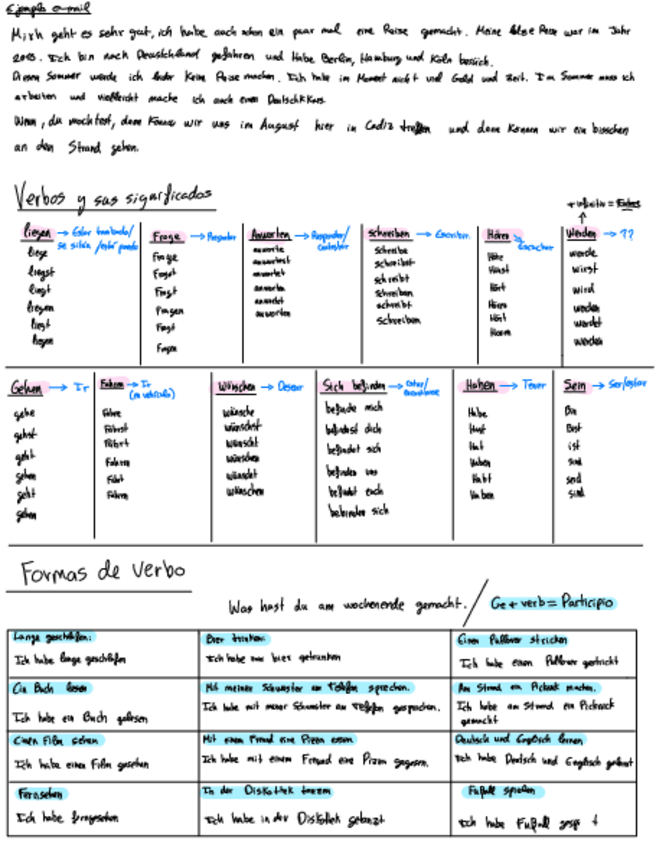 Ejemplo e-mail
Mirh geht es sehr gut, ich habe auch schon ein paar mal eine Reise gemacht. Meine Reise war im Jahr
2015. Ich bin nach Deustchland gefahren und Habe Berlin, Hamburg und Koln besuch.
Diesen Sommer werde ich leider Keine Reise machen. Ich habe im Moment nicht viel Geld und Zeit. Im Sommer muss ich
arbeiten und vielleicht mache ich auch einen Deutschkurs.
Wenn, du mochtest, dann Konnen wir uns im August hier in Cadiz treffen und dann Konnen wir ein bisschen
an den Strand gehen.
Verbos y sus significados
+ infinitivo = Futuro
liegen → Estar tumbado/ se sitúa /
liege
liegst
liegt
liegen
liegt
liegen
Frage → Preguntar
Frage
Fragst
Fragt
Fragen
Fragt
Fragen
Anworten → Responder/ Contestar
anworte
anwortest
anwortet
anworten
anwortet
anworten
Schreiben → Escribir
Schreibe
schreibst
schreibt
Schreiben
schreibt
Schreiben
Hören → Escuchar
Höre
Hörst
Hört
Hören
Hört
Hören
Werden → ??
werde
wirst
wird
werden
werdet
werden
Gehen → Ir
gehe
gehst
geht
gehen
geht
gehen
Fahren → Ir (en vehículo)
Fahre
Fährst
Fährt
Fahren
Fahrt
Fahren
Wünschen → Desear
wünsche
wünschst
wünscht
wünschen
wünscht
wünschen
Sich befinden → estar/ encontrarse
befinde mich
befindest dich
befindet sich
befinden uns
befindet euch
befinden sich
Haben → Tener
Habe
Hast
Hat
Haben
Habt
Haben
Sein → Ser/estar
Bin
Bist
ist
sind
seid
sind
Formas de verbo
Was hast du am wochenende gemacht. / Ge + verb = Participio
Lange geschlafen:
Ich habe lange geschlafen
Bier trinken:
Ich habe bier getrunken
Einen Pullover stricken
Ich habe einen Pullover gestrickt
Ein Buch lesen
Ich habe ein Buch gelesen
Mit meiner Schwester am Telefon sprechen.
Ich habe mit meiner Schwester am Telefon gesprochen.
Am Strand ein Picknick machen.
Ich habe am Strand ein Picknick
gemacht
Einen Film sehen
Ich habe einen Film gesehen
Mit einem Freund eine Pizza essen
Ich habe mit einem Freund eine Pizza gegessen.
Deutsch und Englisch lernen
Ich habe Deutsch und Englisch gelernt
Fernsehen
Ich habe ferngesehen
In der Diskothek tanzen
Ich habe in der Diskothek getanzt
Fußball spielen
Ich habe Fußball gespi t